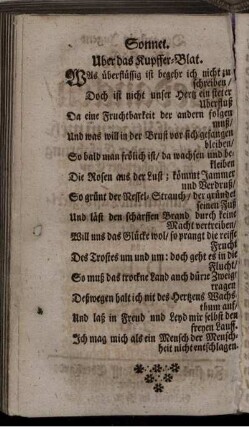 Sonnet.
Uber das Kupffer-Blat.
Was überflüssig ist begehr ich nicht zu
schreiben/
Doch ist nicht unser Hertz ein steter
Uberfluß
Da eine Fruchtbarkeit der andern folgen
muß/
Und was will in der Brust vor sich gefangen
bleiben/
So bald man frölich ist/ da wachsen und be-
kleiben
Die Rosen aus der Lust; kömmt Jammer
und Verdruß/
So grünt der Nessel-Strauch/ der gründet
seinen Fuß
Und läst den scharffen Brand durch keine
Macht vertreiben/
Will uns das Glücke wol/ so prangt die reiffe
Frucht
Des Trostes um und um: doch geht es in die
Flucht/
So muß das trockne Land auch dürre Zweige
tragen
Deßwegen halt ich nit des Hertzens Wachs-
thum auf/
Und laß in Freud und Leyd mir selbst den
freyen Lauff.
Ich mag mich als ein Mensch der Mensch-
heit nicht entschlagen.